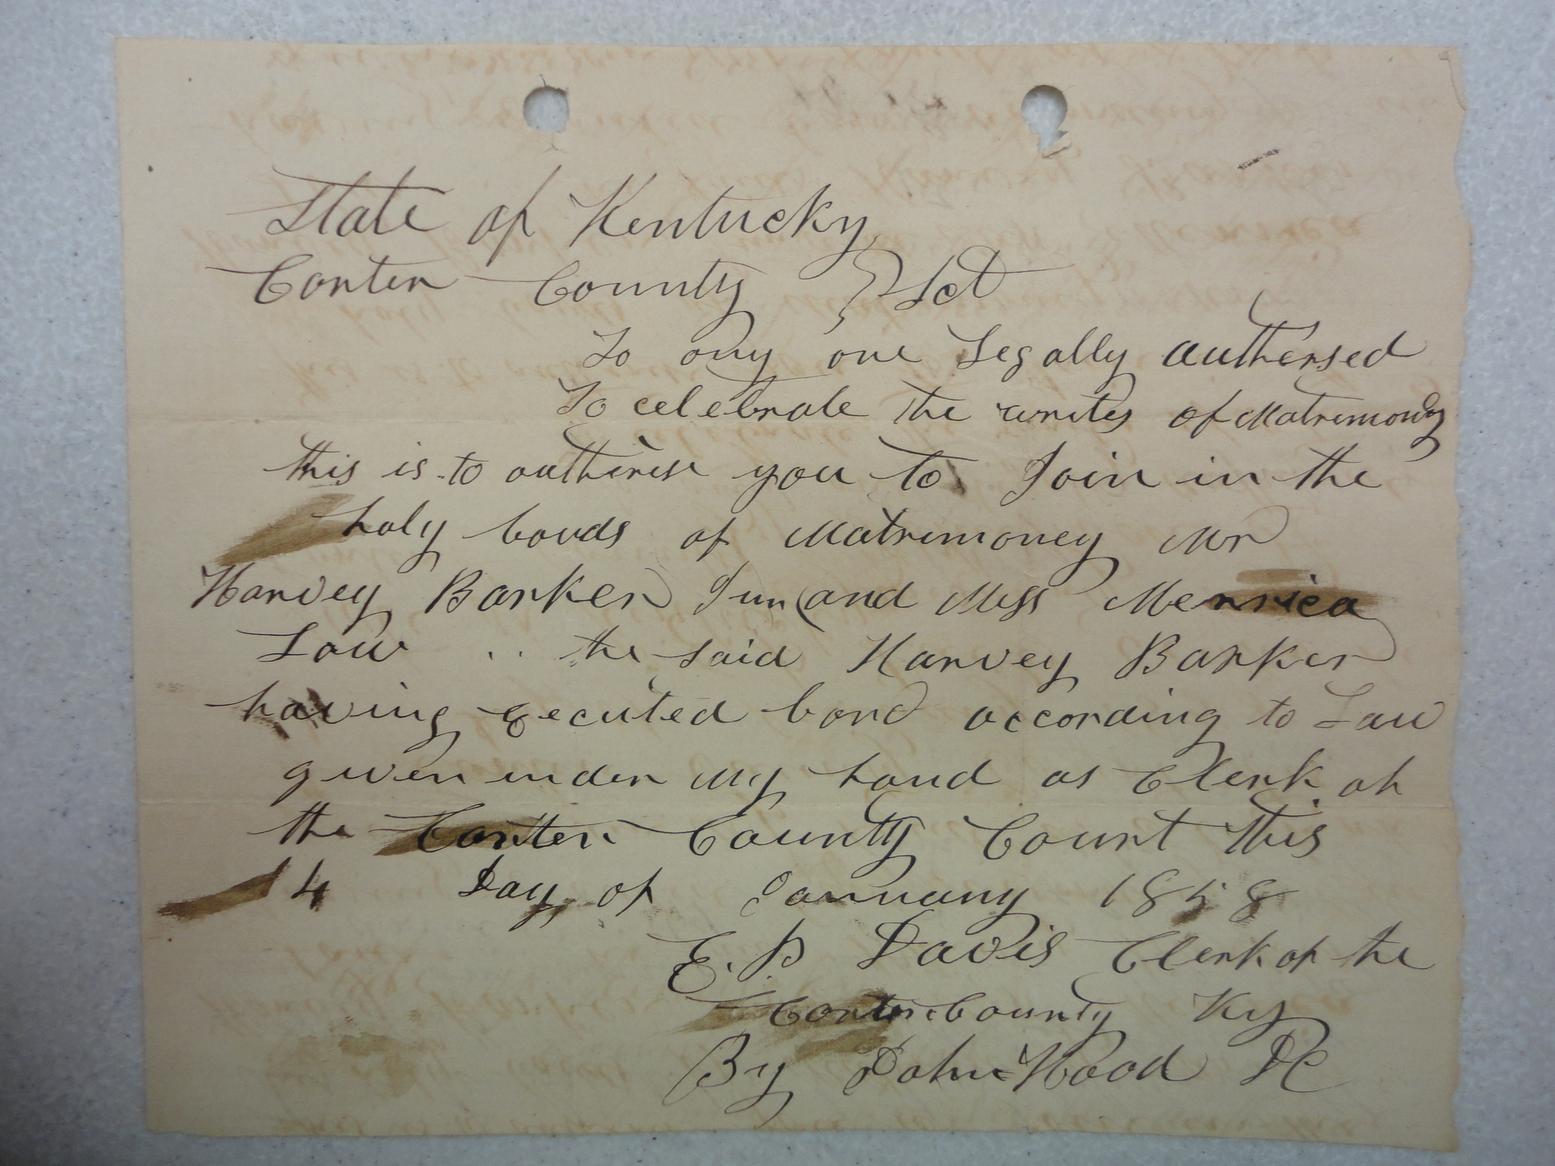 State of Kentucky
Carter County } Sct
To any one Legally authersed
To celebrate the writes of Matrimony
this is to autherise you to Join in the
holy bonds of Matrimoney Mr
Harvey Barker Jun and Miss
Law .. the said Harvey Barker
having executed bond according to Law
given under my hand as Clerk of
the Carter County Court this
14 Day of January 1858
E. D Davis Clerk of the
Carter County Ky
By John Hood DC